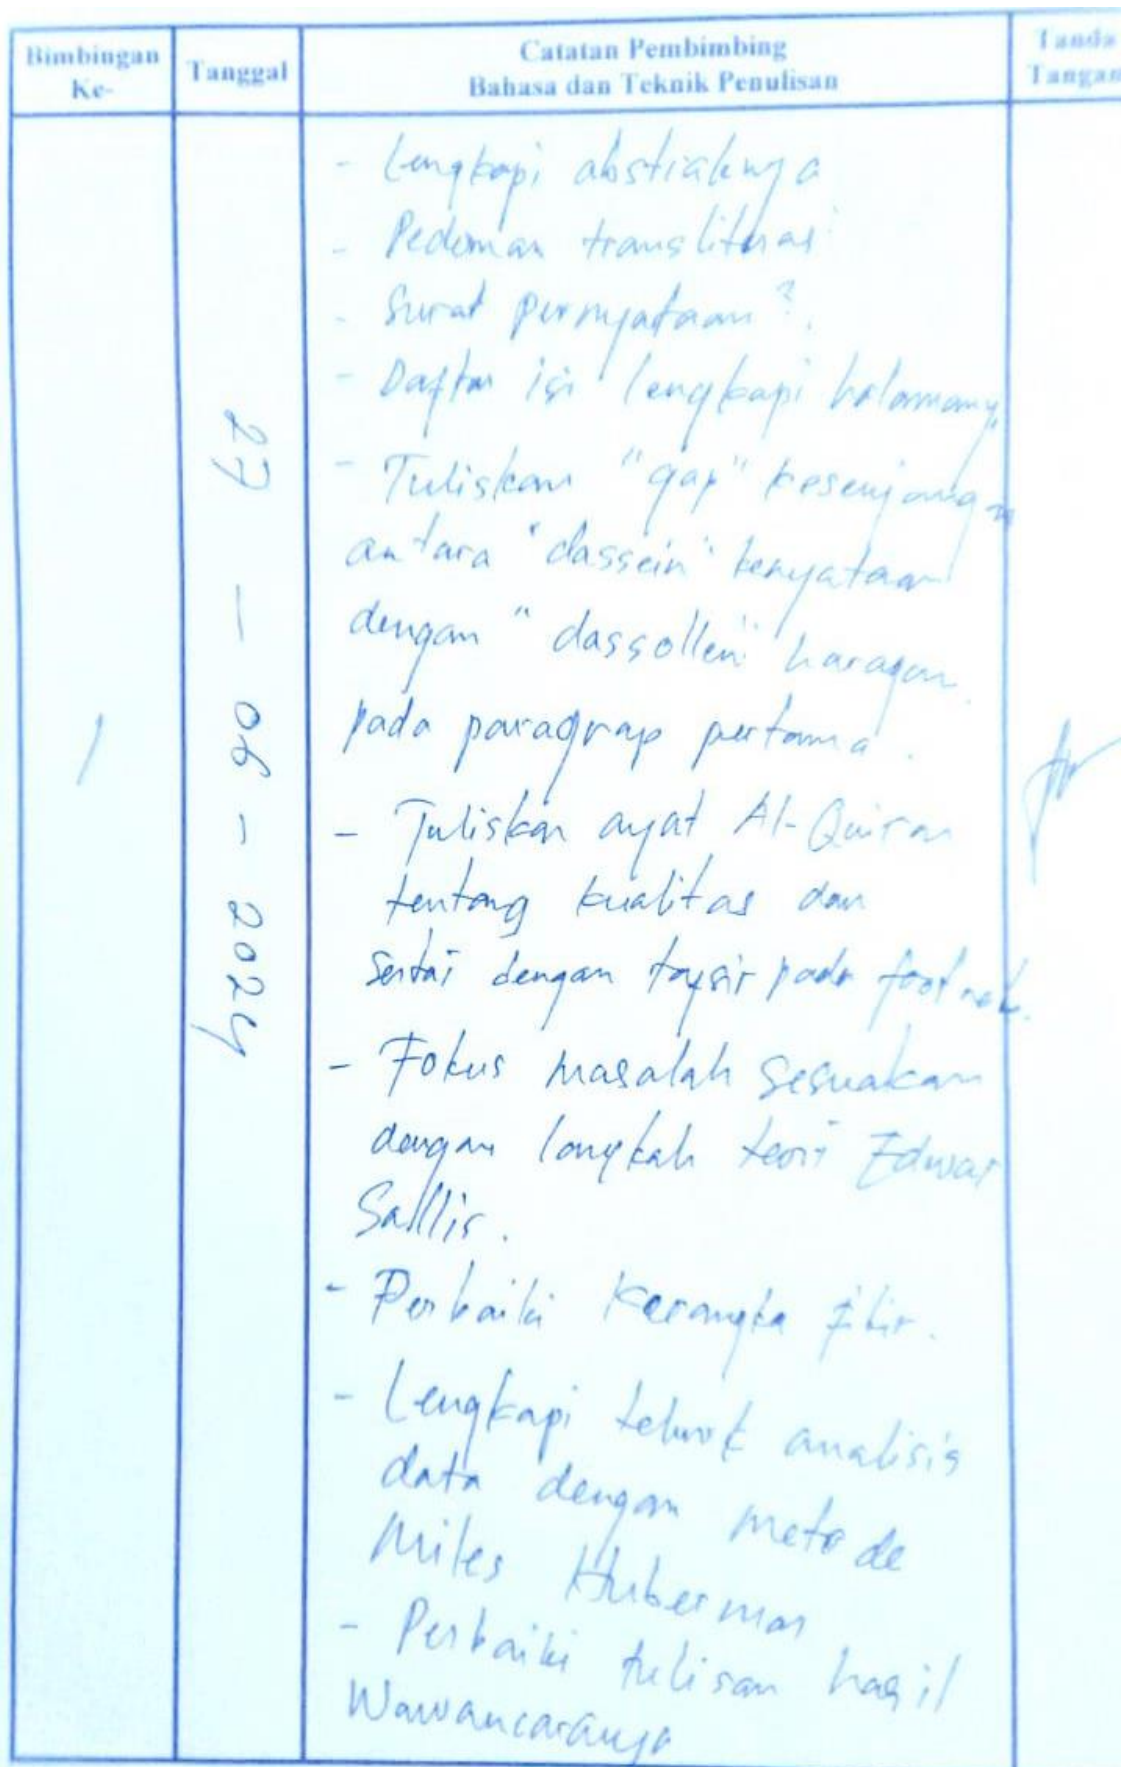 Bimbingan Ke-
Tanggal
Catatan Pembimbing
Bahasa dan Teknik Penulisan
Tanda Tangan
1
27 - 06 - 2024
- Lengkapi abstraknya
- Pedoman transliterasi
- Surat Pernyataan?
- Daftar isi lengkapi halamannya
- Tuliskan "gap" kesenjangan
antara "dassein" kenyataan
dengan "dassollen" harapan
pada paragrap pertama.
- Tuliskan ayat Al-Qur'an
tentang kualitas dan
sertai dengan tafsir pada foot note.
- Fokus masalah sesuaikan
dengan langkah teori Edwar
Sallis.
- Perbaiki Kerangka fikir.
- Lengkapi tehnik analisis
data dengan metode
Miles Huberman
- Perbaiki tulisan hasil
Wawancaranya